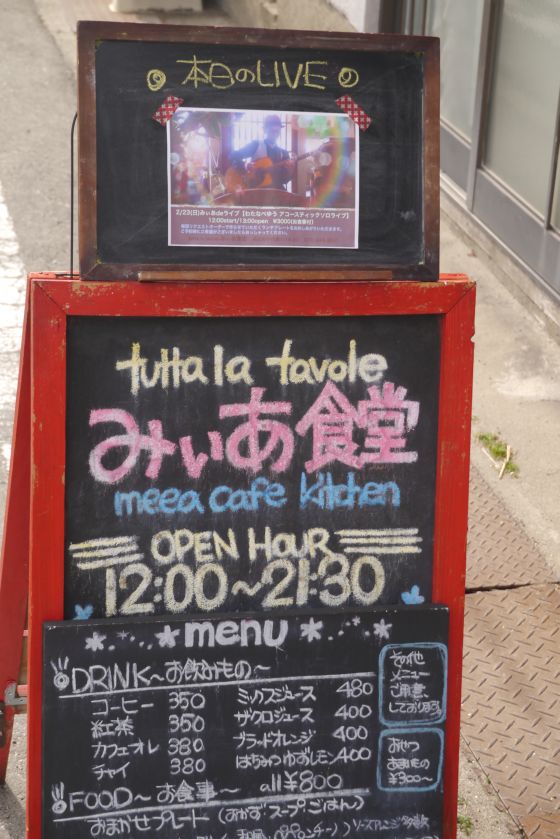 本日のLIVE
2/23(日)みぃあdeライブ【わたなべゆう アコースティックソロライブ】
12:00start/13:00open ¥3000(お食事付)
tutta la tavole
みぃあ食堂
meea cafe kitchen
OPEN HOUR
12:00~21:30
menu
DRINK~お飲みもの~
コーヒー 350
紅茶 350
カフェオレ 380
チャイ 380
ミックスジュース 480
ザクロジュース 400
ブラッドオレンジ 400
はちみつゆずレモン 400
その他
メニュー
ご用意
しております
おやつ
あまいもの
¥300~
FOOD~お食事~ all¥800
おまかせプレート (おかず スープ ごはん)